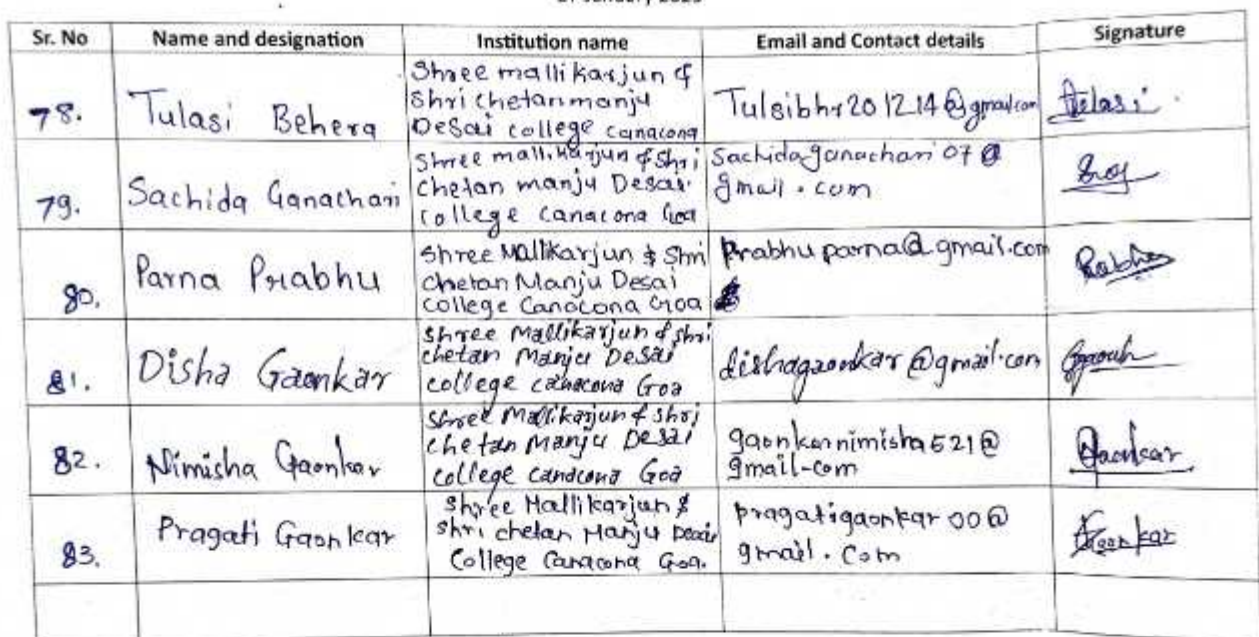 Sr. No Name and designation Institution name Email and Contact details Signature
78. Tulasi Behera Shree mallikarjun & Shri chetanmanju Desai college canacona Tulsibhr201214@gmail.com Tulasi
79. Sachida Ganachari Shree mallikarjun & Shri Chetan manju Desai college Canacona Goa Sachidaganachari07@gmail.com
80. Parna Prabhu Shree Mallikarjun & Shri Chetan Manju Desai college Canacona Goa Prabhuparna@gmail.com Prabhu
81. Disha Gaonkar Shree Mallikarjun & Shri chetan Manju Desai college canacona Goa dishagaonkar@gmail.com
82. Nimisha Gaonkar Shree Mallikarjun & Shri Chetan Manju Desai College Canacona Goa gaonkarnimisha521@gmail-com Gaonkar
83. Pragati Gaonkar Shree Mallikarjun & Shri chetan Manju Desai College Canacona Goa. pragatigaonkar00@gmail.com Gaonkar